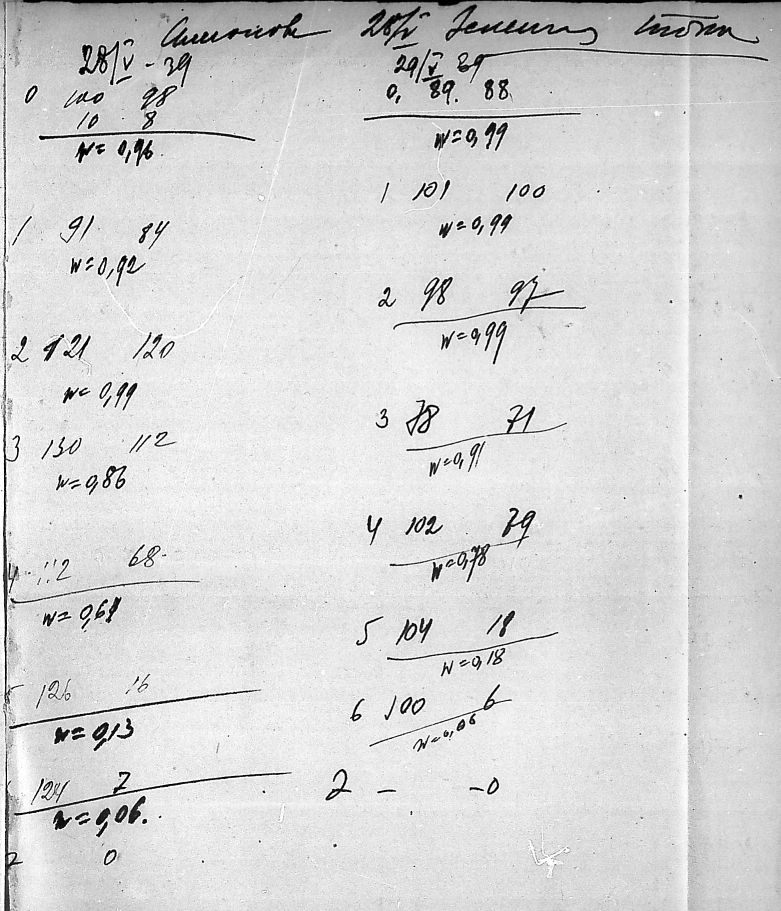 28/V
28/V - 39
0 100 98
10 8
w = 0,96
1 91 84
w = 0,92
2 121 120
w = 0,99
3 130 112
w = 0,86
4 112 68
w = 0,61
126 16
w = 0,13
124 7
w = 0,06.
0
29/V 39
0, 89. 88
w = 0,99
1 101 100
w = 0,99
2 98 97
w = 0,99
3 78 71
w = 0,91
4 102 79
w = 0,78
5 104 18
w = 0,18
6 100 6
w = 0,06
2 - - 0